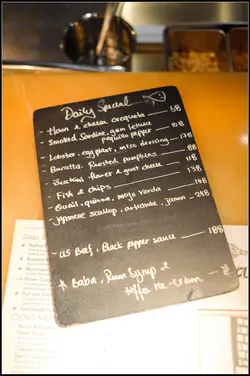 Daily Special
- Ham & cheese croqueta — 68
- Smoked Sardine, gem lettuce 108
piquillo pepper
- Lobster, eggplant, miso dressing — 178
- Burrata, Roasted pumpkins — 88
- Zucchini flower & goat cheese — 118
- Fish & chips — 138
- Quail, quinoa, mojo verde — 148
- Japanese scallop, jamon - 248
- US Beef, Black pepper sauce — 188
* Baba, Rum Syrup &
toffee ice-cream —